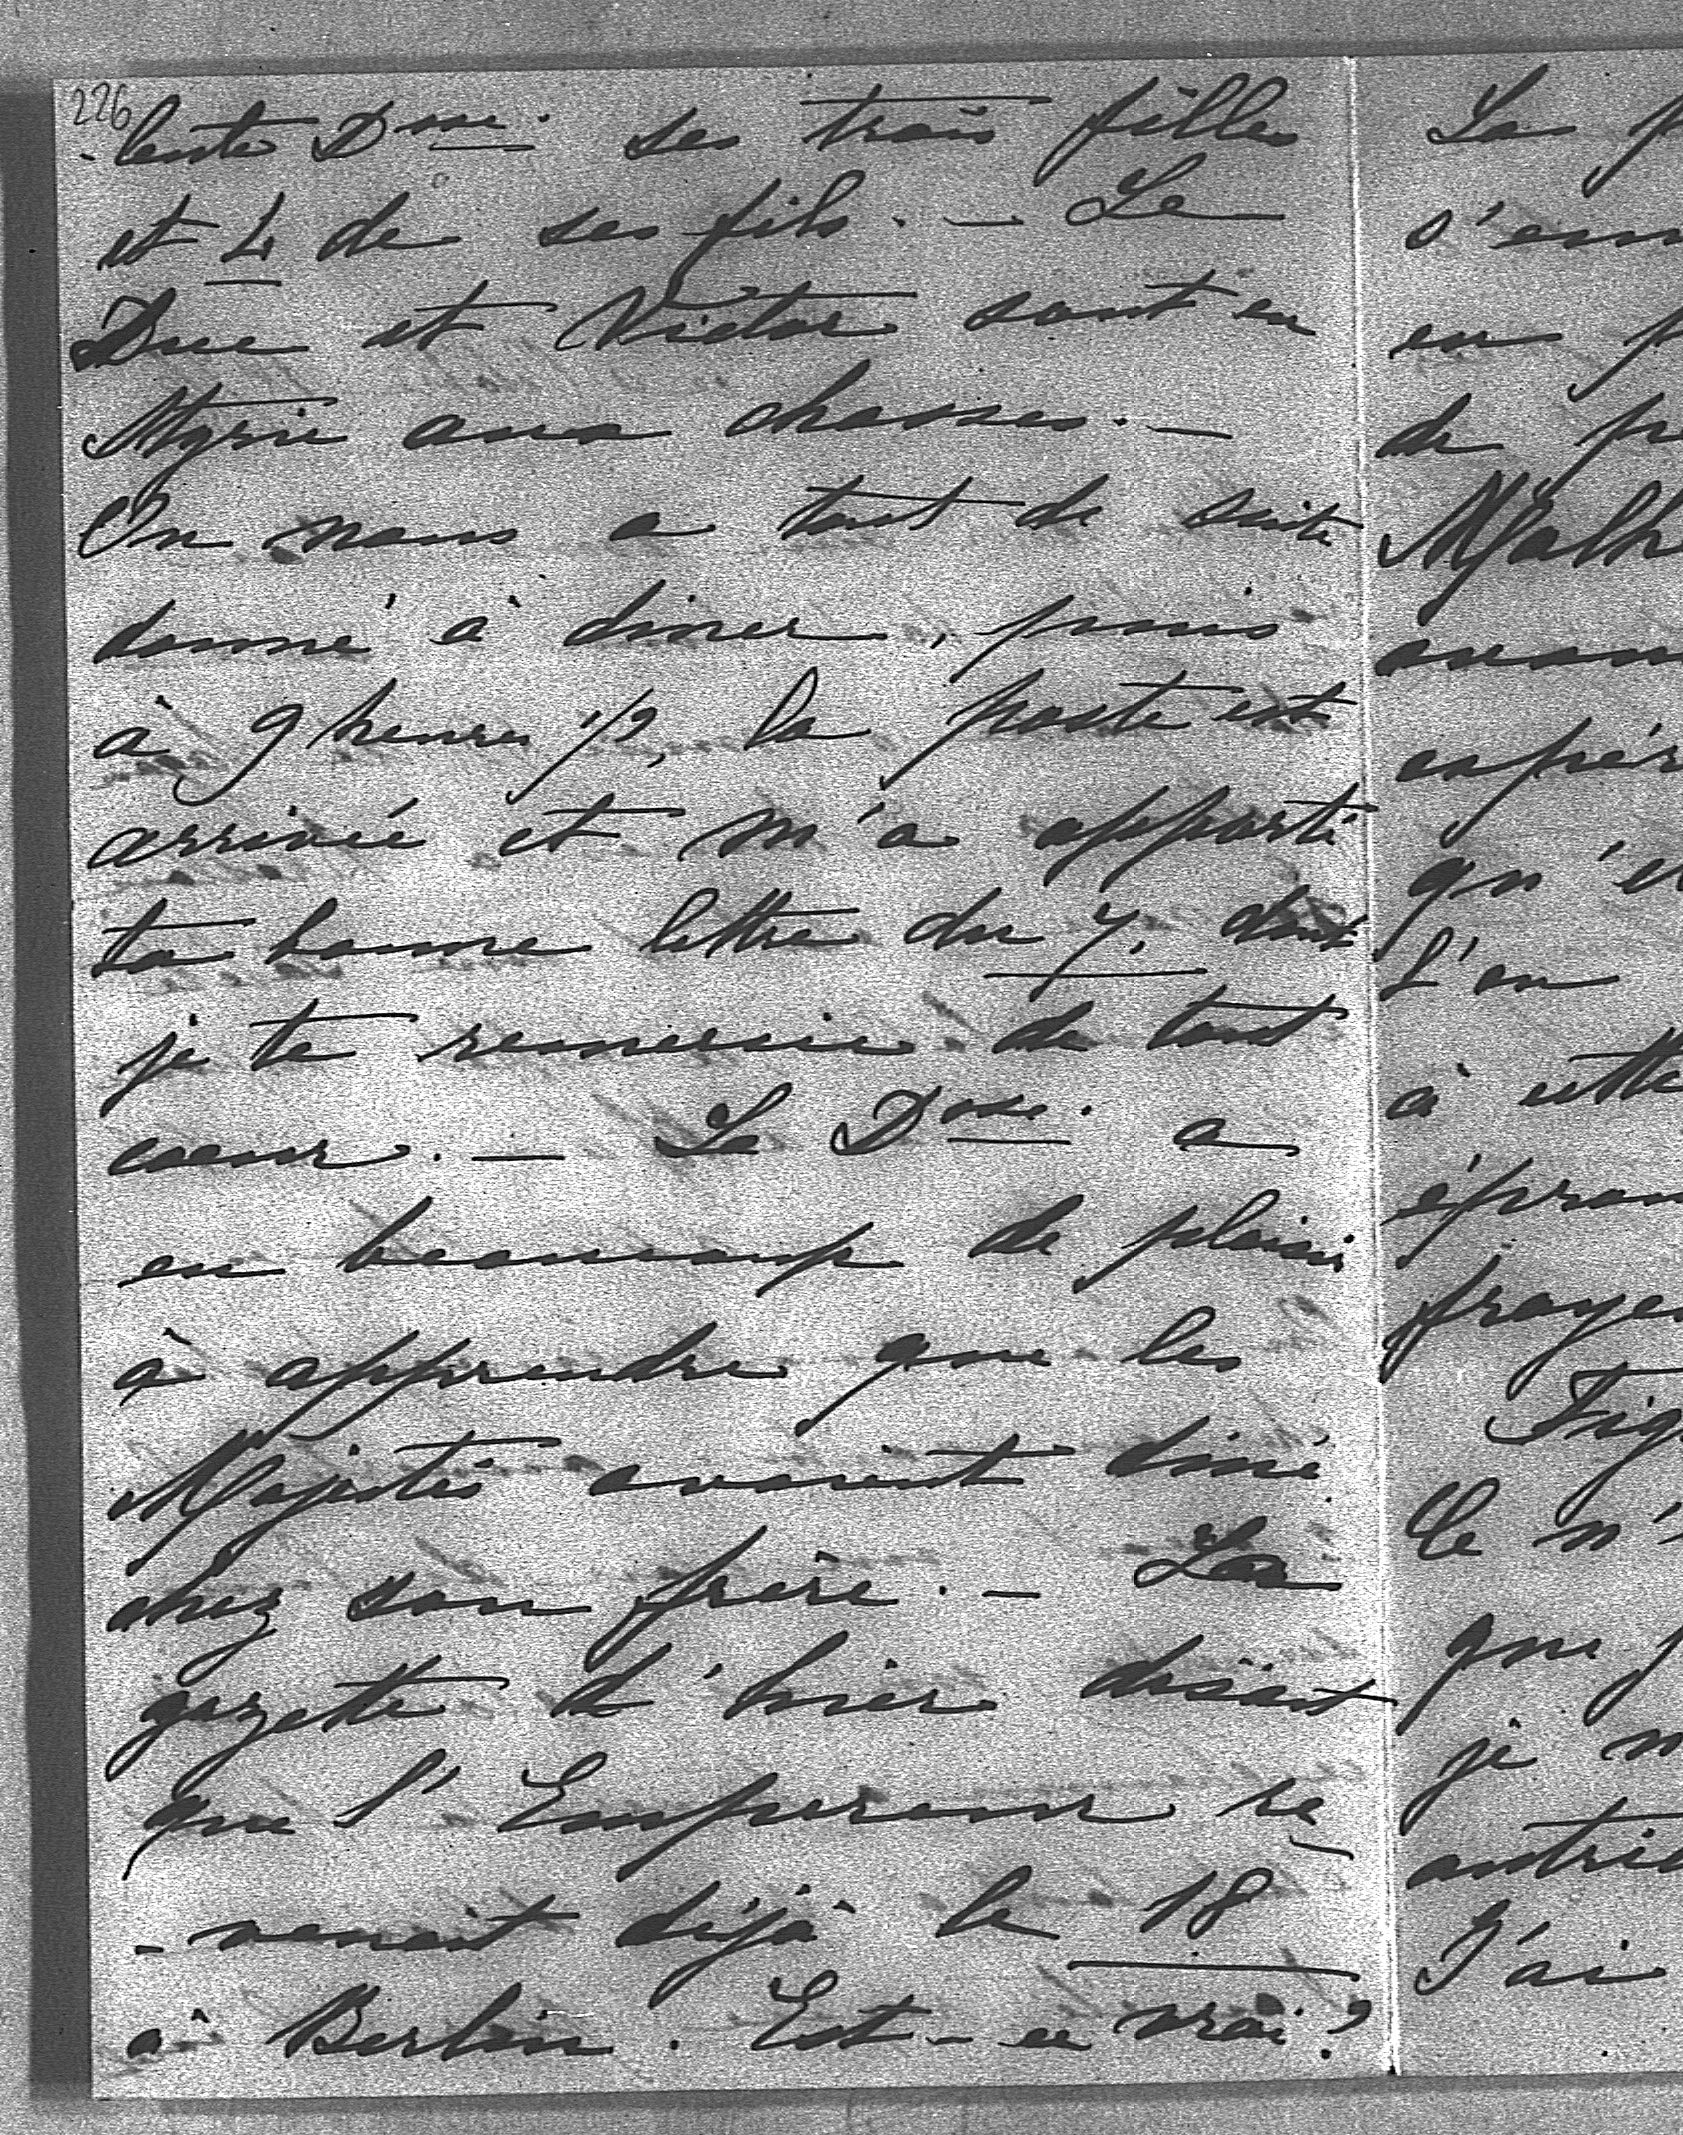 226
-lente Dsse. ses trois filles
et 4 de ses fils. — Le
Duc et Victor sont en
Styrie aux chasses. —
On nous a tout de suite
donné à dîner, puis
à 9 heures 1/2, la poste est
arrivée et m'a apporté
ta bonne lettre du 7, dont
je te remercie de tout
coeur. — La Dsse. a
eu beaucoup de plaisir
à apprendre que les
Majestés avaient dîné
chez son frère. — La
gazette d'hier disait
que l'Empereur re-
-venait déjà le 18
à Berlin. Est-ce vrai?
Les p
s'enn
en p
de pr
Malh
avan
espér
qu'el
l'on
à cette
éprou
frayeu
Frig
Ce n'
que j
je n
autri
J'ai